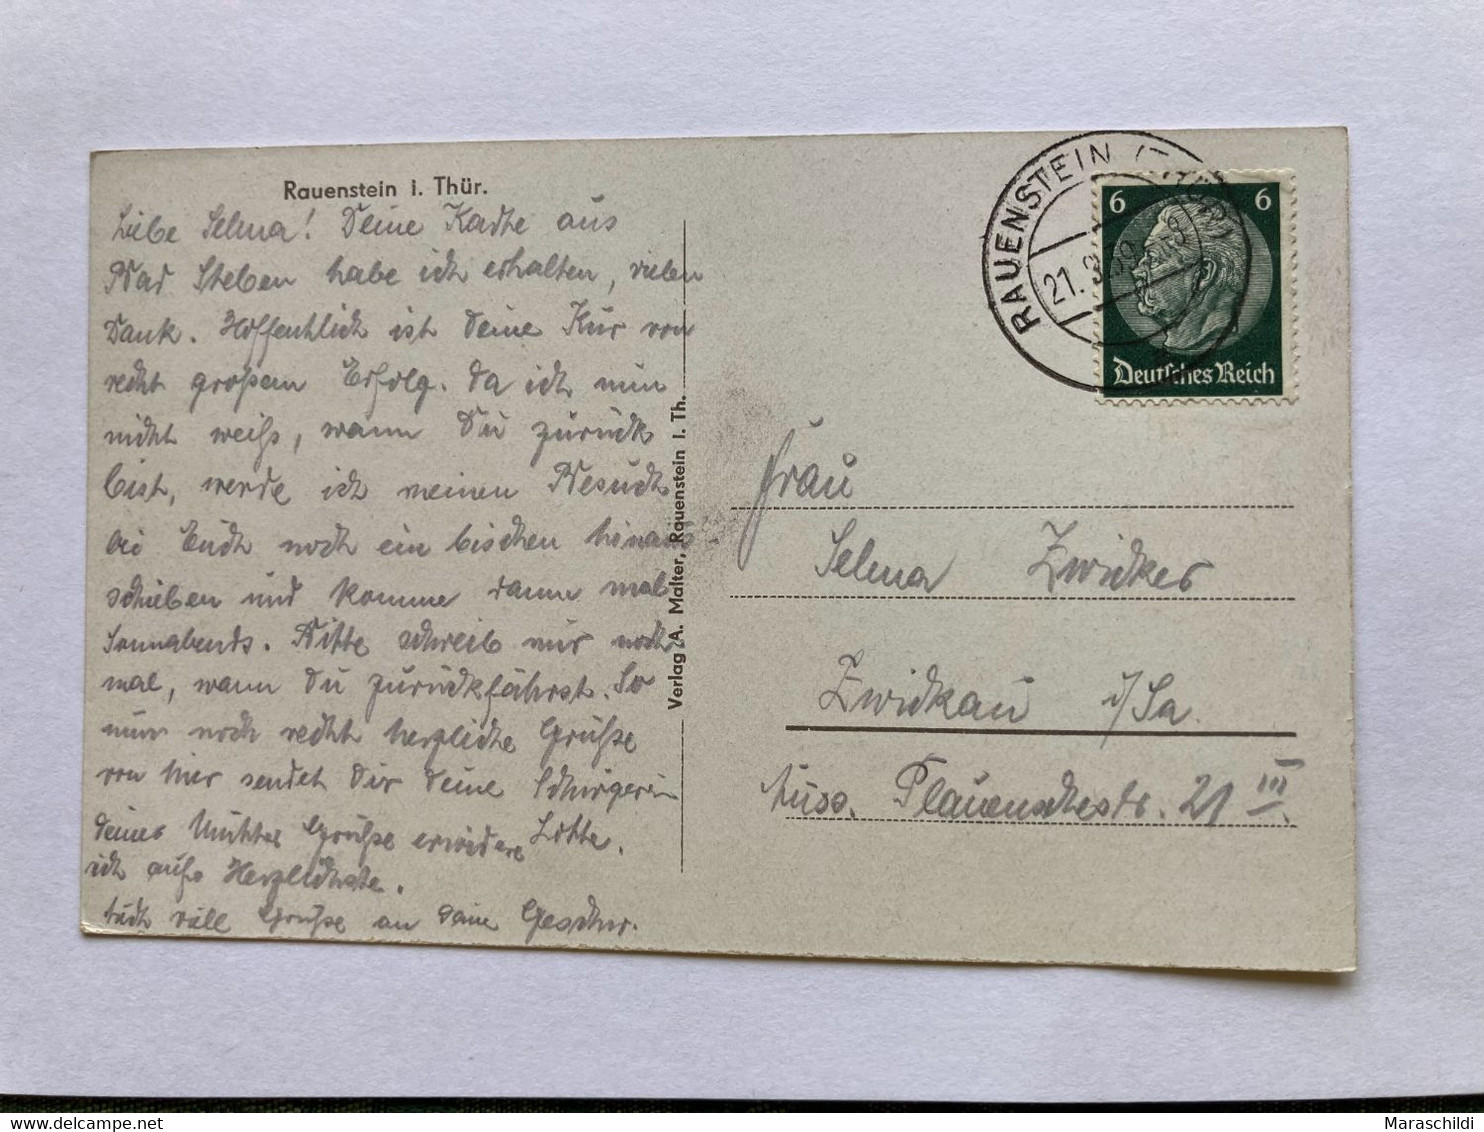 Rauenstein i. Thür.
Liebe Selma! Deine Karte aus
Bad Steben habe ich erhalten, vielen
Dank. Hoffentlich ist Deine Kur von
recht großem Erfolg. Da ich nun
nicht weiß, wann Du zurück
bist, werde ich meinen Besuch
bei Euch noch ein bischen hinaus-
schieben und komme dann mal
Sonnabends. Bitte schreib mir noch
mal, wann Du zurückfährst. So
nun noch recht herzliche Grüße
von hier sendet Dir Deine Schwägerin
Lotte.
Deiner Mutter Grüße erwidere
ich aufs Herzlichste.
Auch viele Grüße an Deine Geschw.
Verlag A. Malter, Rauenstein i. Th.
RAUENSTEIN (THÜR)
21. 3. 39
6 6
Deutsches Reich
Frau
Selma Zwicker
Zwickau i/Sa.
Äuss. Plauenschestr. 21 III.
Maraschildi